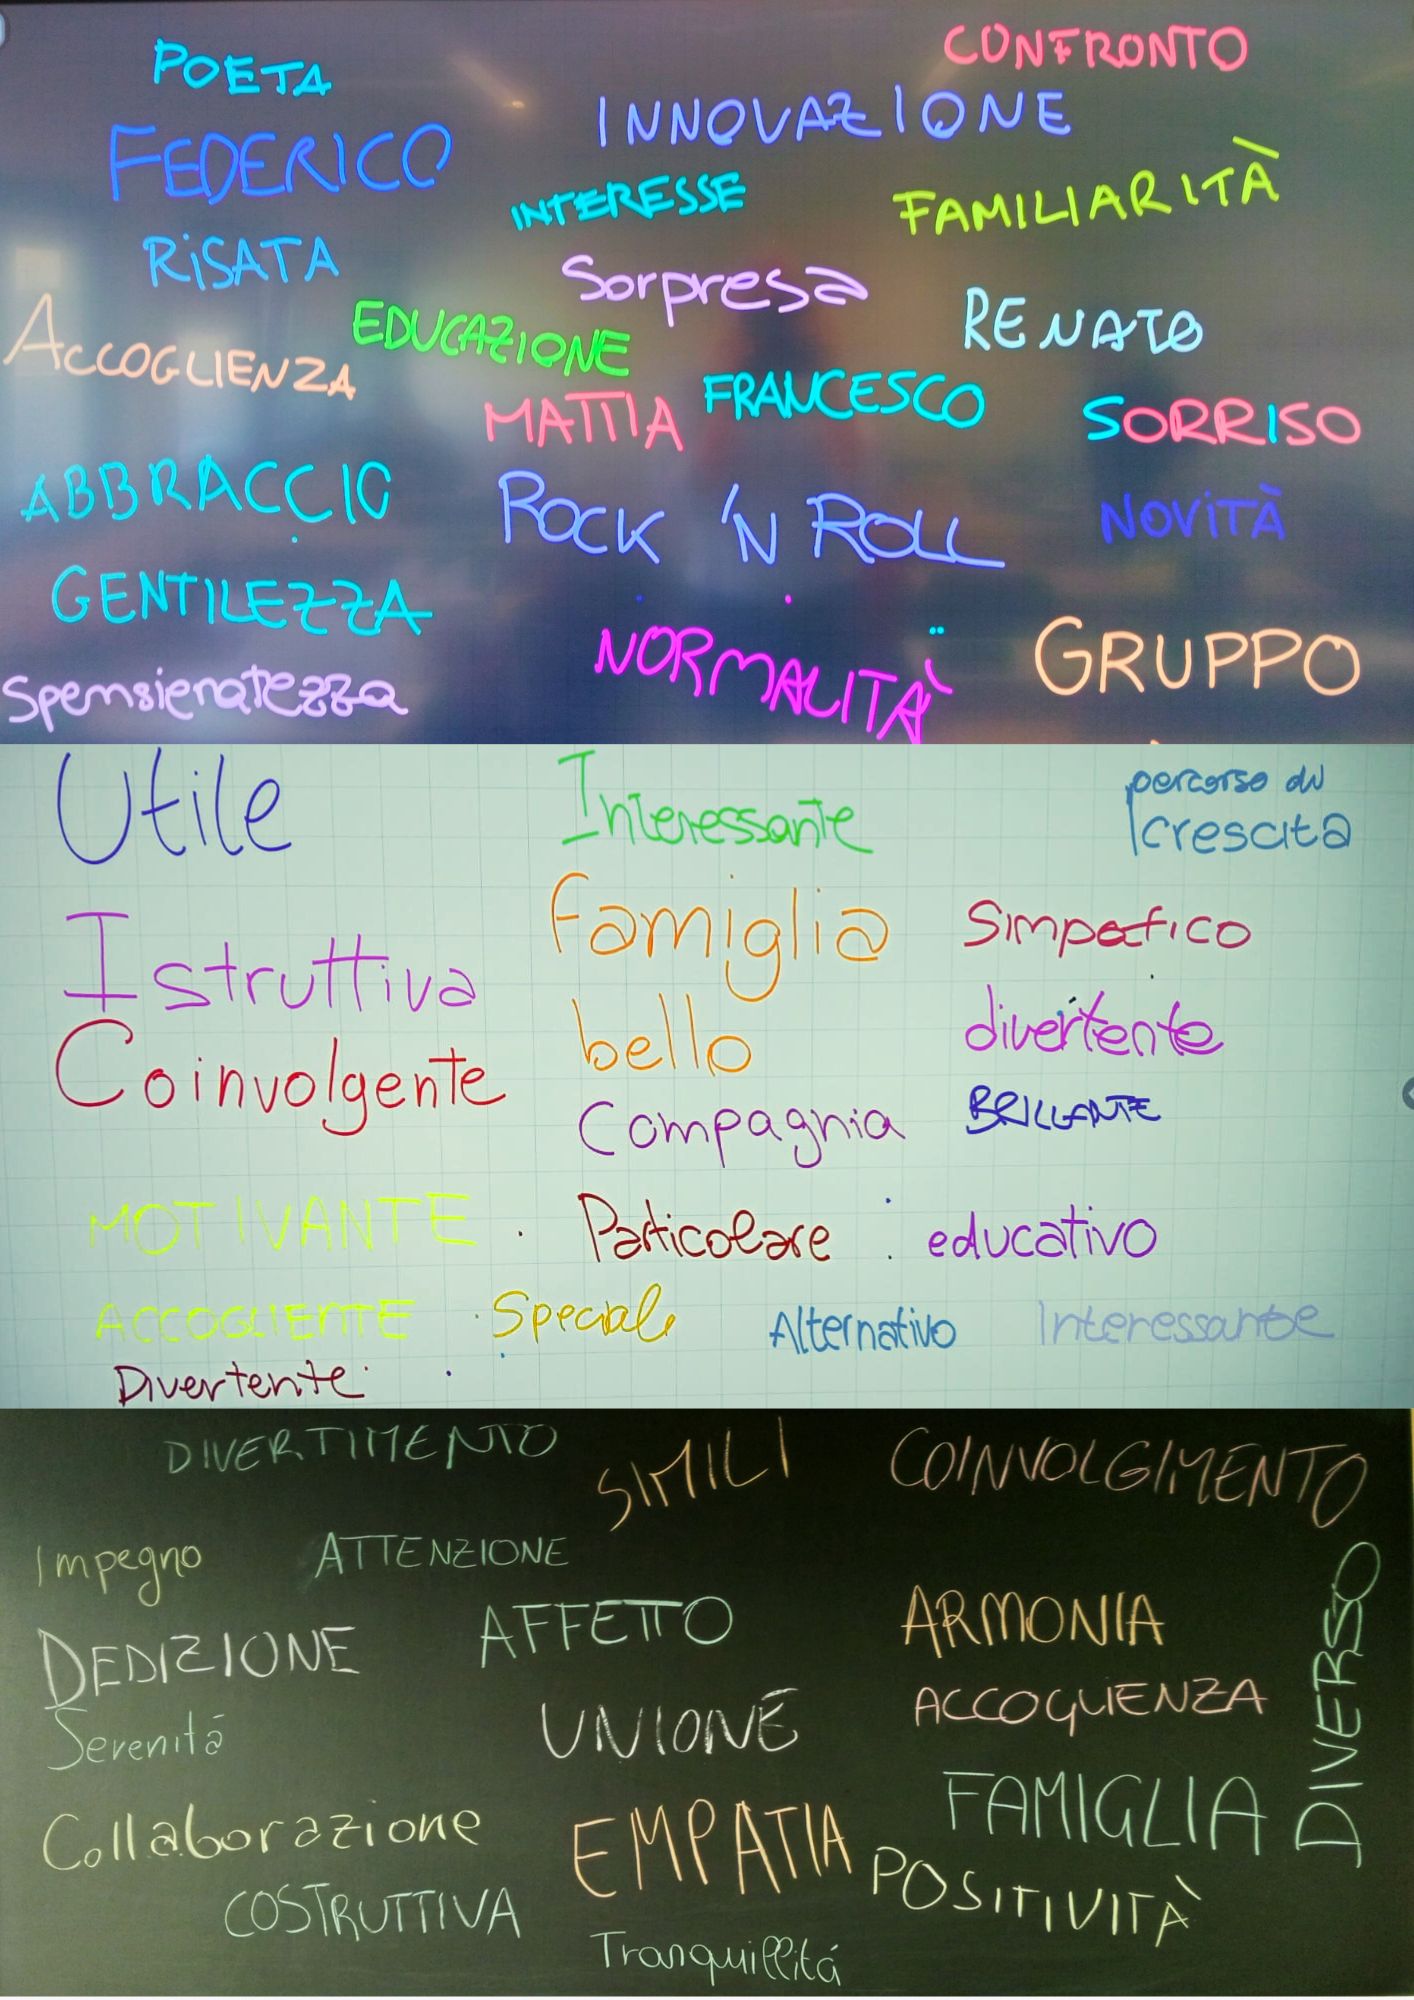 POETA
CONFRONTO
INNOVAZIONE
FEDERICO
INTERESSE
FAMILIARITÀ
RISATA
Sorpresa
RENATO
ACCOGLIENZA
EDUCAZIONE
MATTIA
FRANCESCO
SORRISO
ABBRACCIO
ROCK 'N ROLL
NOVITÀ
GENTILEZZA
NORMALITÀ
GRUPPO
Spensieratezza
Utile
Interessante
percorso di
crescita
Istruttiva
famiglia
Simpatico
Coinvolgente
bello
divertente
Compagnia
BRILLANTE
MOTIVANTE
Particolare
educativo
ACCOGLIENTE
Speciale
Alternativo
Interessante
Divertente
DIVERTIMENTO
SIMILI
COINVOLGIMENTO
Impegno
ATTENZIONE
DEDIZIONE
AFFETTO
ARMONIA
DIVERSO
Serenitá
UNIONE
ACCOGLIENZA
Collaborazione
EMPATIA
FAMIGLIA
COSTRUTTIVA
POSITIVITÀ
Tranquillitá